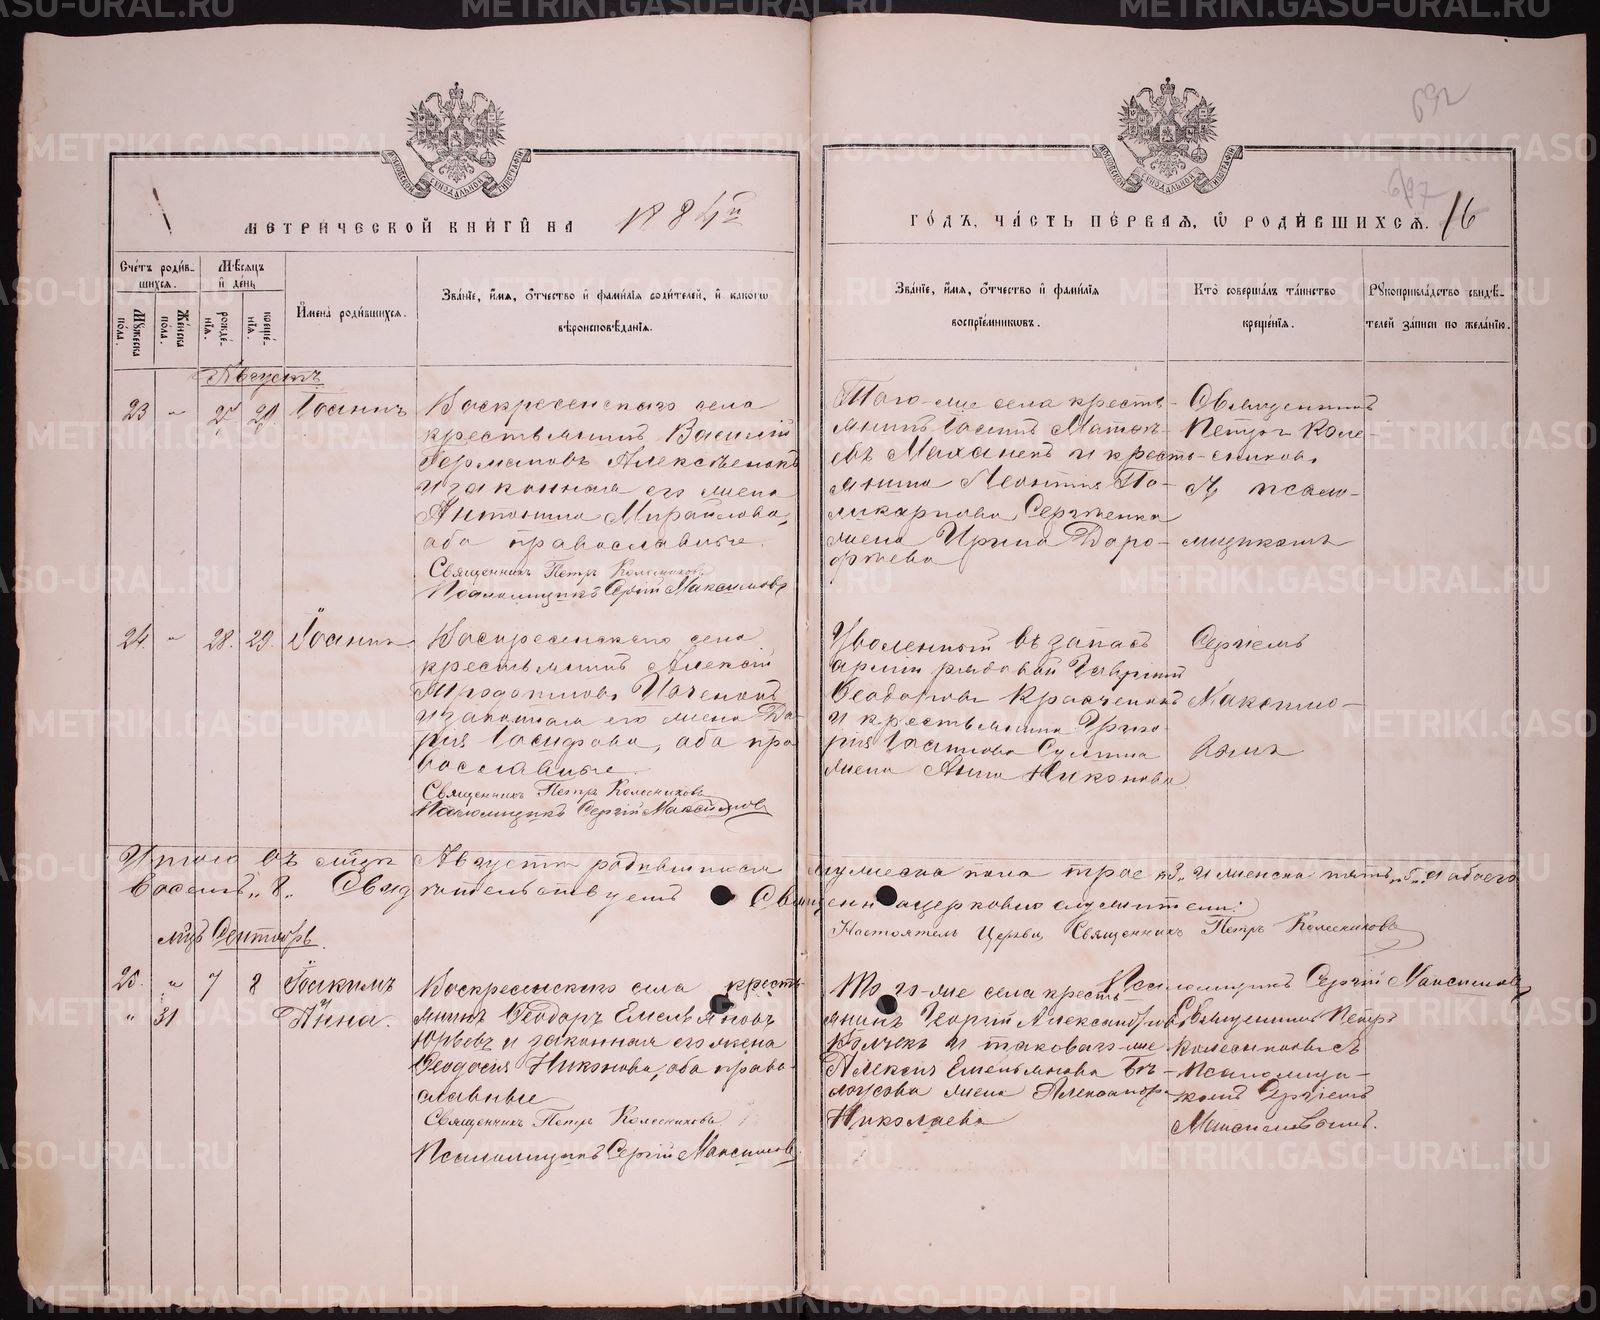 METRIKI.GASO-URAL.RU
692
697
16
МОСКОВСКОЙ СѴНОДАЛЬНОЙ ТИПОГРАФІИ
МЕТРИЧЕСКОЙ КНИГИ НА 1884й
ГОДЪ, ЧАСТЬ ПЕРВАЯ, Ѡ РОДИВШИХСЯ.
Счетъ родив-
шихся.
Мужеска пола.
Женска пола.
Мѣсяцъ
и день
рожде-
нїя.
креще-
нїя.
Имена родившихся.
Званїе, имя, отчество и фамилїя родителей, и какогѡ
вѣроисповѣданїя.
Званїе, имя, отчество и фамилїя
воспрїемниковъ.
Кто совершалъ таинство
крещенїя.
Рукоприкладство свидѣ-
телей записи по желанїю.
Августъ
23 " 27 29 Іоаннъ
Воскресенскаго села
крестьянинъ Василій
Германовъ
и законная его жена
Антонина Михайлова,
оба православные.
Священникъ Петръ Колесниковъ
Псаломщикъ Сергій Максимовъ
Того-же села кресть-
янинъ
и кресть-
янина Леонтія По-
ликарпова Сергѣенка
жена Ирина Доро-
ѳѣева
Священникъ
Петръ Коле-
сниковъ
съ псало-
мщикомъ
24. " 28. 29. Іоаннъ
Воскресенскаго села
крестьянинъ Алексій
и законная его жена Да-
рія Іосифова, оба пра
вославные.
Священникъ Петръ Колесниковъ
Псаломщикъ Сергій Максимовъ
Уволенный въ запасъ
арміи рядовой Гавріилъ
Ѳеодоровъ Кравченко
и крестьянина Григо-
рія
жена Анна Никонова
Сергіемъ
Максимо-
вымъ
Итого въ мцѣ Августѣ родившихся мужеска пола трое "3" и женска пять "5" и обоего
восемь "8" Свидѣтельствуемъ Священно церковно служители:
Настоятель Церкви, Священникъ Петръ Колесниковъ
Псаломщикъ Сергій Максимовъ
мцъ Сентябрь.
25. " 7 8 Іоакимъ
" 31 и Анна.
Воскресенскаго села кресть-
янинъ Ѳеодоръ Емельяновъ
Юрьевъ и законная его жена
Ѳеодосія Никонова, оба право-
славные
Священникъ Петръ Колесниковъ
Псаломщикъ Сергій Максимовъ
То го-же села кресть-
янинъ Георгій Александровъ
и таковаго-же
Алексія Емельянова Бѣ-
лоусова жена Александра
Николаева
Священникъ Петръ
Колесниковъ съ
псаломщи-
комъ Сергіемъ
Максимовымъ.